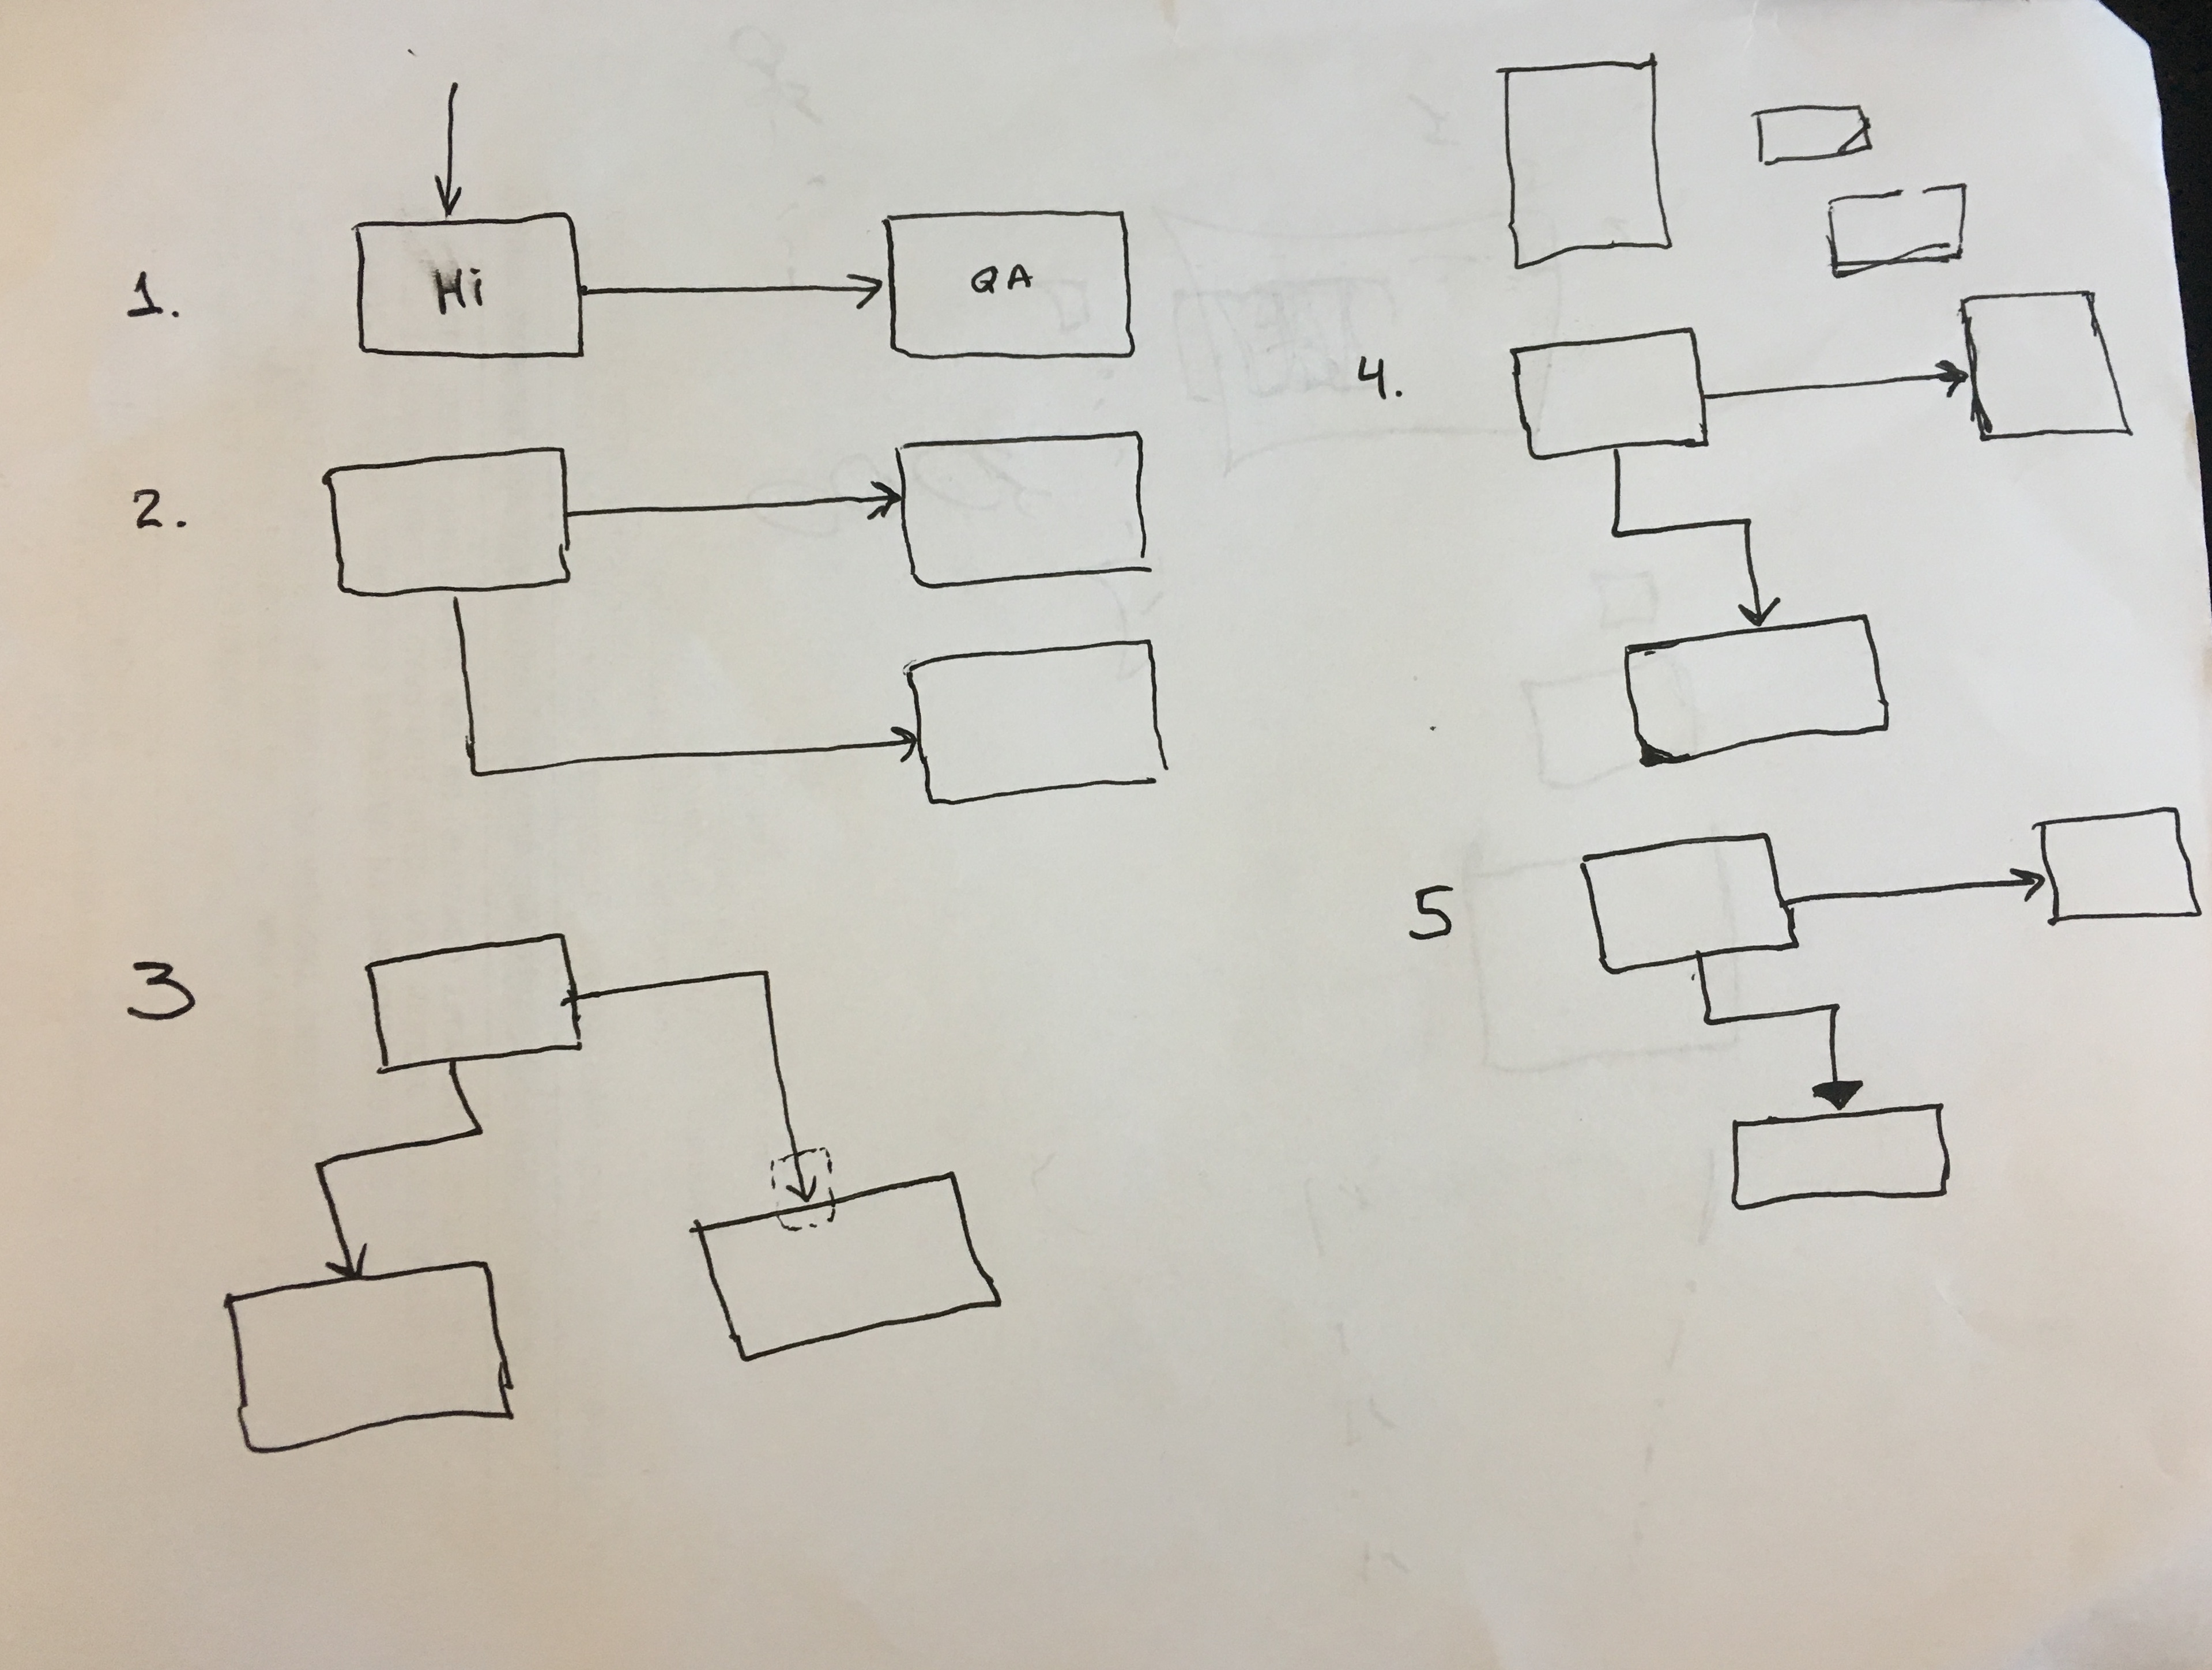 1.
Hi
QA
2.
3
4.
5